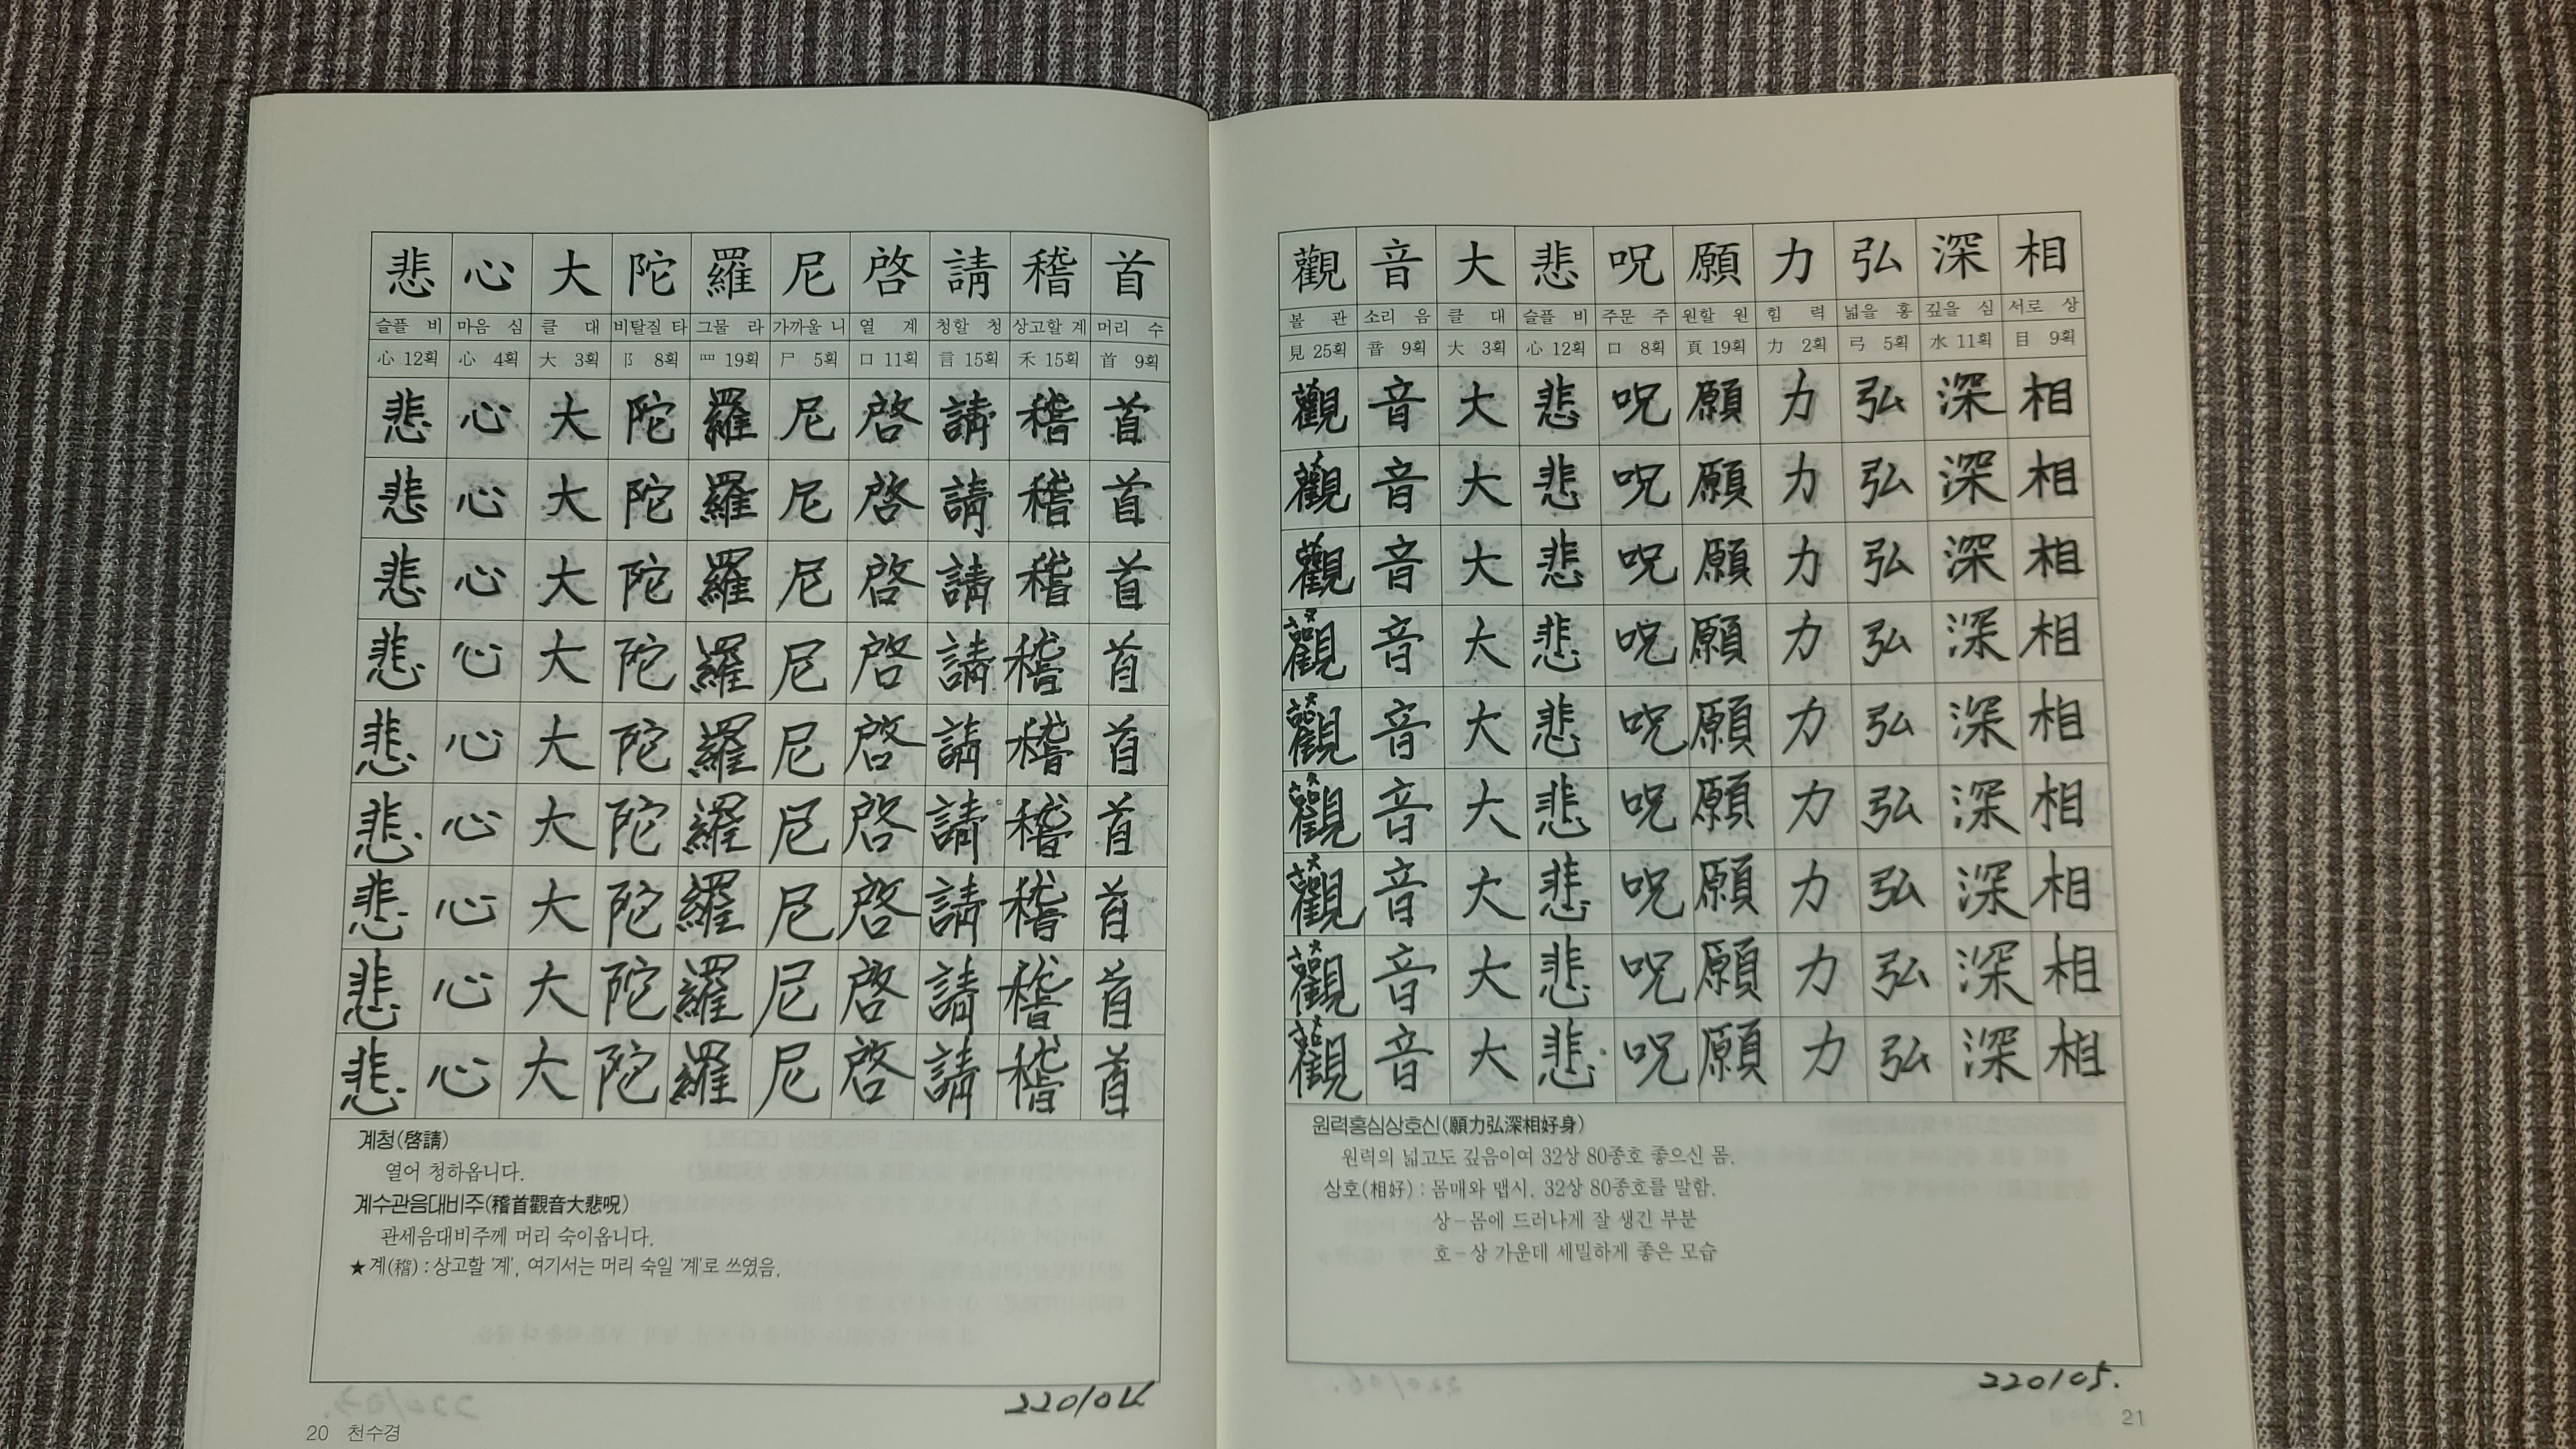 悲 心 大 陀 羅 尼 啓 請 稽 首
슬플 비 마음 심 클 대 비탈질 타 그물 라 가까울 니 열 계 청할 청 상고할 계 머리 수
心 12획 心 4획 大 3획 阝 8획 罒 19획 尸 5획 口 11획 言 15획 禾 15획 首 9획
悲 心 大 陀 羅 尼 啓 請 稽 首
悲 心 大 陀 羅 尼 啓 請 稽 首
悲 心 大 陀 羅 尼 啓 請 稽 首
悲 心 大 陀 羅 尼 啓 請 稽 首
悲 心 大 陀 羅 尼 啓 請 稽 首
悲 心 大 陀 羅 尼 啓 請 稽 首
悲 心 大 陀 羅 尼 啓 請 稽 首
悲 心 大 陀 羅 尼 啓 請 稽 首
悲 心 大 陀 羅 尼 啓 請 稽 首
계청(啓請)
열어 청하옵니다.
계수관음대비주(稽首觀音大悲呪)
관세음대비주께 머리 숙이옵니다.
★계(稽) : 상고할 '계', 여기서는 머리 숙일 '계'로 쓰였음.
220104
20 천수경
觀 音 大 悲 呪 願 力 弘 深 相
볼 관 소리 음 클 대 슬플 비 주문 주 원할 원 힘 력 넓을 홍 깊을 심 서로 상
見 25획 音 9획 大 3획 心 12획 口 8획 頁 19획 力 2획 弓 5획 水 11획 目 9획
觀 音 大 悲 呪 願 力 弘 深 相
觀 音 大 悲 呪 願 力 弘 深 相
觀 音 大 悲 呪 願 力 弘 深 相
觀 音 大 悲 呪 願 力 弘 深 相
觀 音 大 悲 呪 願 力 弘 深 相
觀 音 大 悲 呪 願 力 弘 深 相
觀 音 大 悲 呪 願 力 弘 深 相
觀 音 大 悲 呪 願 力 弘 深 相
觀 音 大 悲 呪 願 力 弘 深 相
원력홍심상호신(願力弘深相好身)
원력의 넓고도 깊음이여 32상 80종호 좋으신 몸.
상호(相好) : 몸매와 맵시. 32상 80종호를 말함.
상-몸에 드러나게 잘 생긴 부분
호-상 가운데 세밀하게 좋은 모습
220105.
21